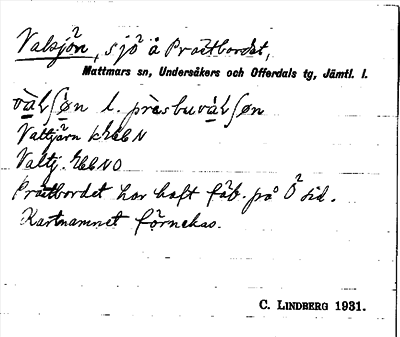 Valsjön, sjö å Prästbordet,
Mattmars sn, Undersåkers och Offerdals tg, Jämtl. l.
l. präsbuvàlʃøn
Valtjärn
Valtj.
Prästbordet har haft fäb. på Ö sid.
Kartnamnet förnekas.
C. LINDBERG 1931.